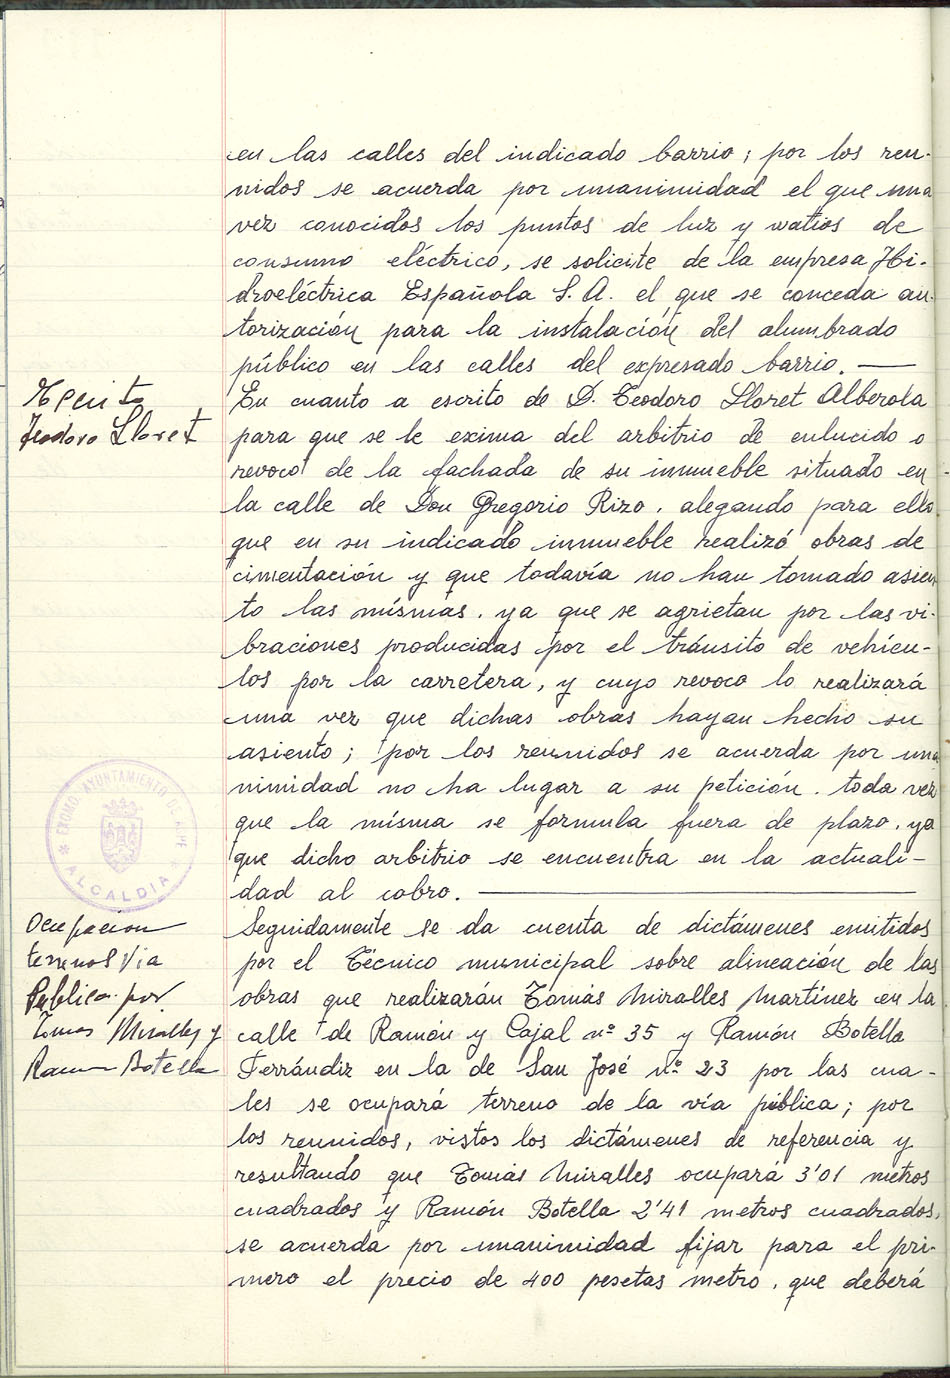 en las calles del indicado barrio; por los reu-
nidos se acuerda por unanimidad el que una
vez conocidos los puntos de luz y watios de
consumo eléctrico, se solicite de la empresa Hi-
droeléctrica Española S. A. el que se conceda au-
torización para la instalación del alumbrado
público en las calles del expresado barrio. —
Teodoro Lloret
En cuanto a escrito de D. Teodoro Lloret Alberola
para que se le exima del arbitrio de enlucido o
revoco de la fachada de su inmueble situado en
la calle de Don Gregorio Rizo, alegando para ello
que en su indicado inmueble realizó obras de
cimentación y que todavía no han tomado asien-
to las mísmas, ya que se agrietan por las vi-
braciones producidas por el tránsito de vehícu-
los por la carretera, y cuyo revoco lo realizará
una vez que dichas obras hayan hecho su
asiento; por los reunidos se acuerda por una
nimidad no ha lugar a su petición, toda vez
que la mísma se formula fuera de plazo, ya
que dicho arbitrio se encuentra en la actuali-
dad al cobro. —
EXCMO. AYUNTAMIENTO DE ASPE
* ALCALDIA *
Ocupacion
terrenos Via
Publica por
Tomas Miralles y
Ramon Botella
Seguidamente se da cuenta de dictámenes emitidos
por el Técnico municipal sobre alineación de las
obras que realizarán Tomás Miralles Martínez en la
calle de Ramón y Cajal nº 35 y Ramón Botella
Ferrándiz en la de San José nº 23 por las cua-
les se ocupará terreno de la vía pública; por
los reunidos, vistos los dictámenes de referencia y
resultando que Tomás Miralles ocupará 3'01 metros
cuadrados y Ramón Botella 2'41 metros cuadrados,
se acuerda por unanimidad fijar para el pri-
mero el precio de 400 pesetas metro, que deberá